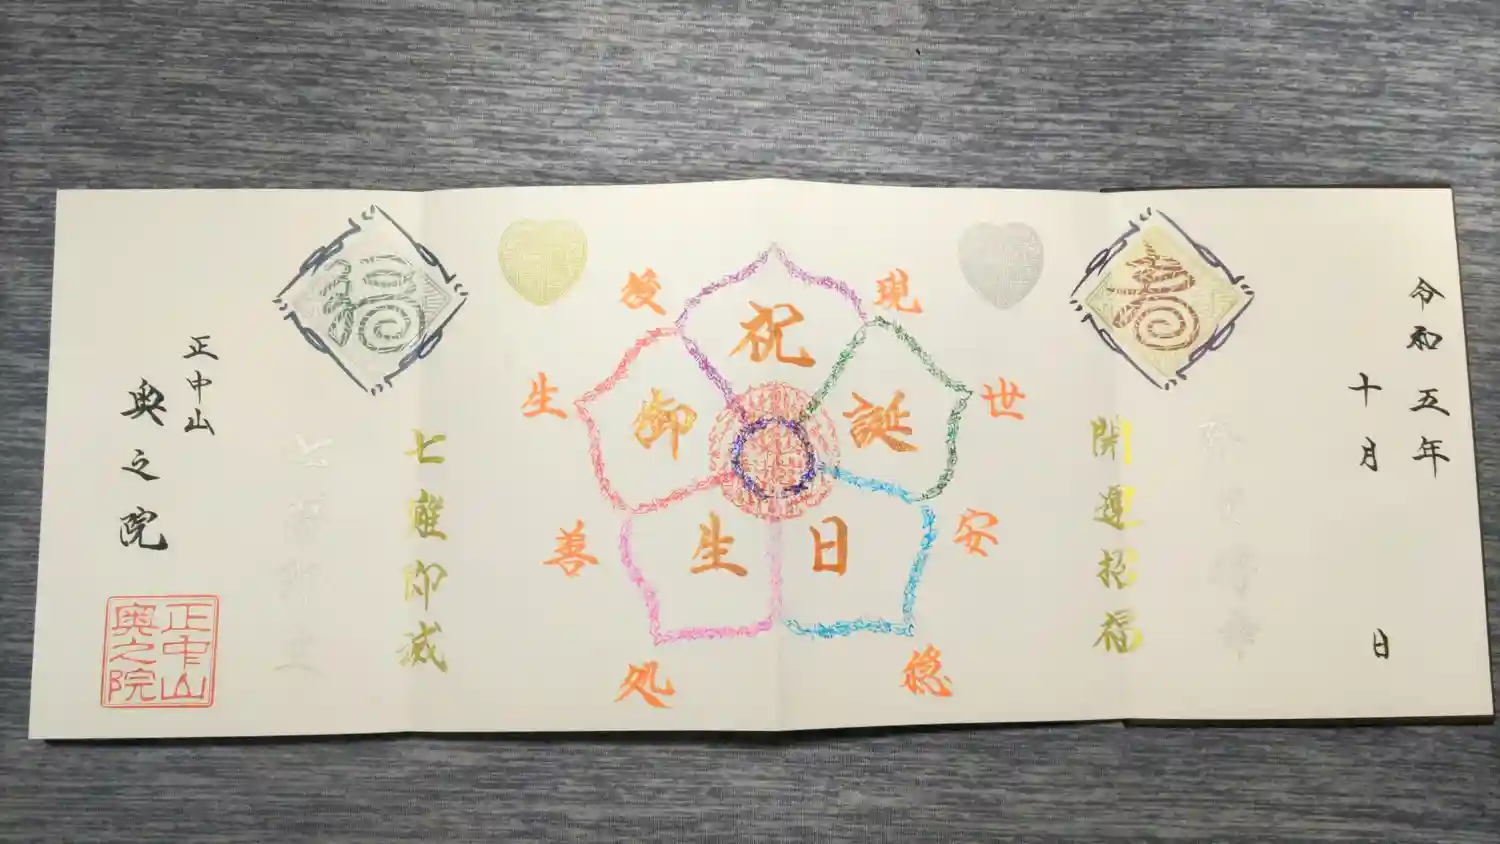 令和五年
十月 日
寿
開運招福
現世安穏
祝
御誕
生日
後生善処
福
七難即滅
正中山
奥之院
正中山
奥之院